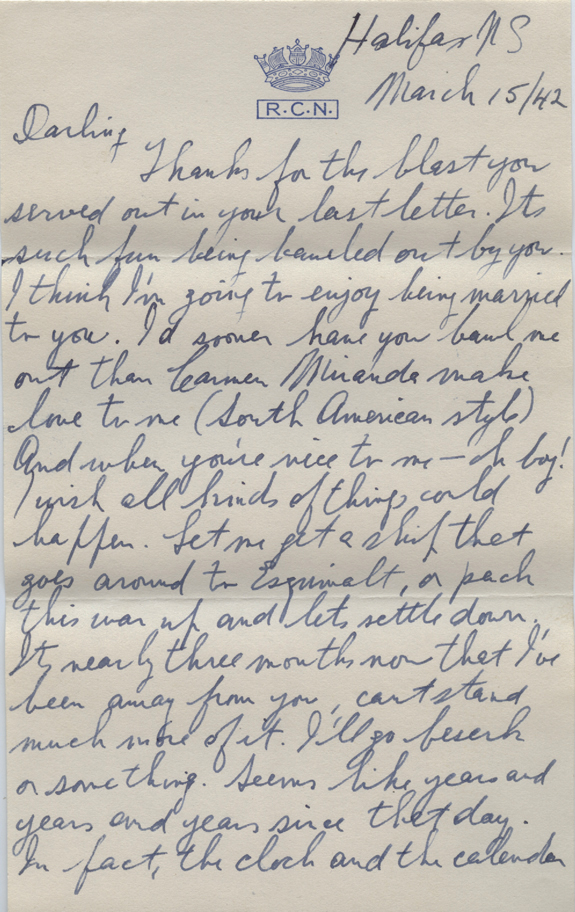 Halifax NS
R.C.N.
March 15/42
Darling
Thanks for the blast you
served out in your last letter. Its
such fun being bawled out by you.
I think I'm going to enjoy being married
to you. I'd sooner have you bawl me
out than Carmen Miranda make
love to me (South American style)
And when you're nice to me — oh boy!
I wish all kinds of things could
happen. Let me get a ship that
goes around to Esquimalt, or pack
this war up and lets settle down.
Its nearly three months now that I've
been away from you, cant stand
much more of it. I'll go beserk
or something. Seems like years and
years and years since that day.
In fact, the clock and the calendar